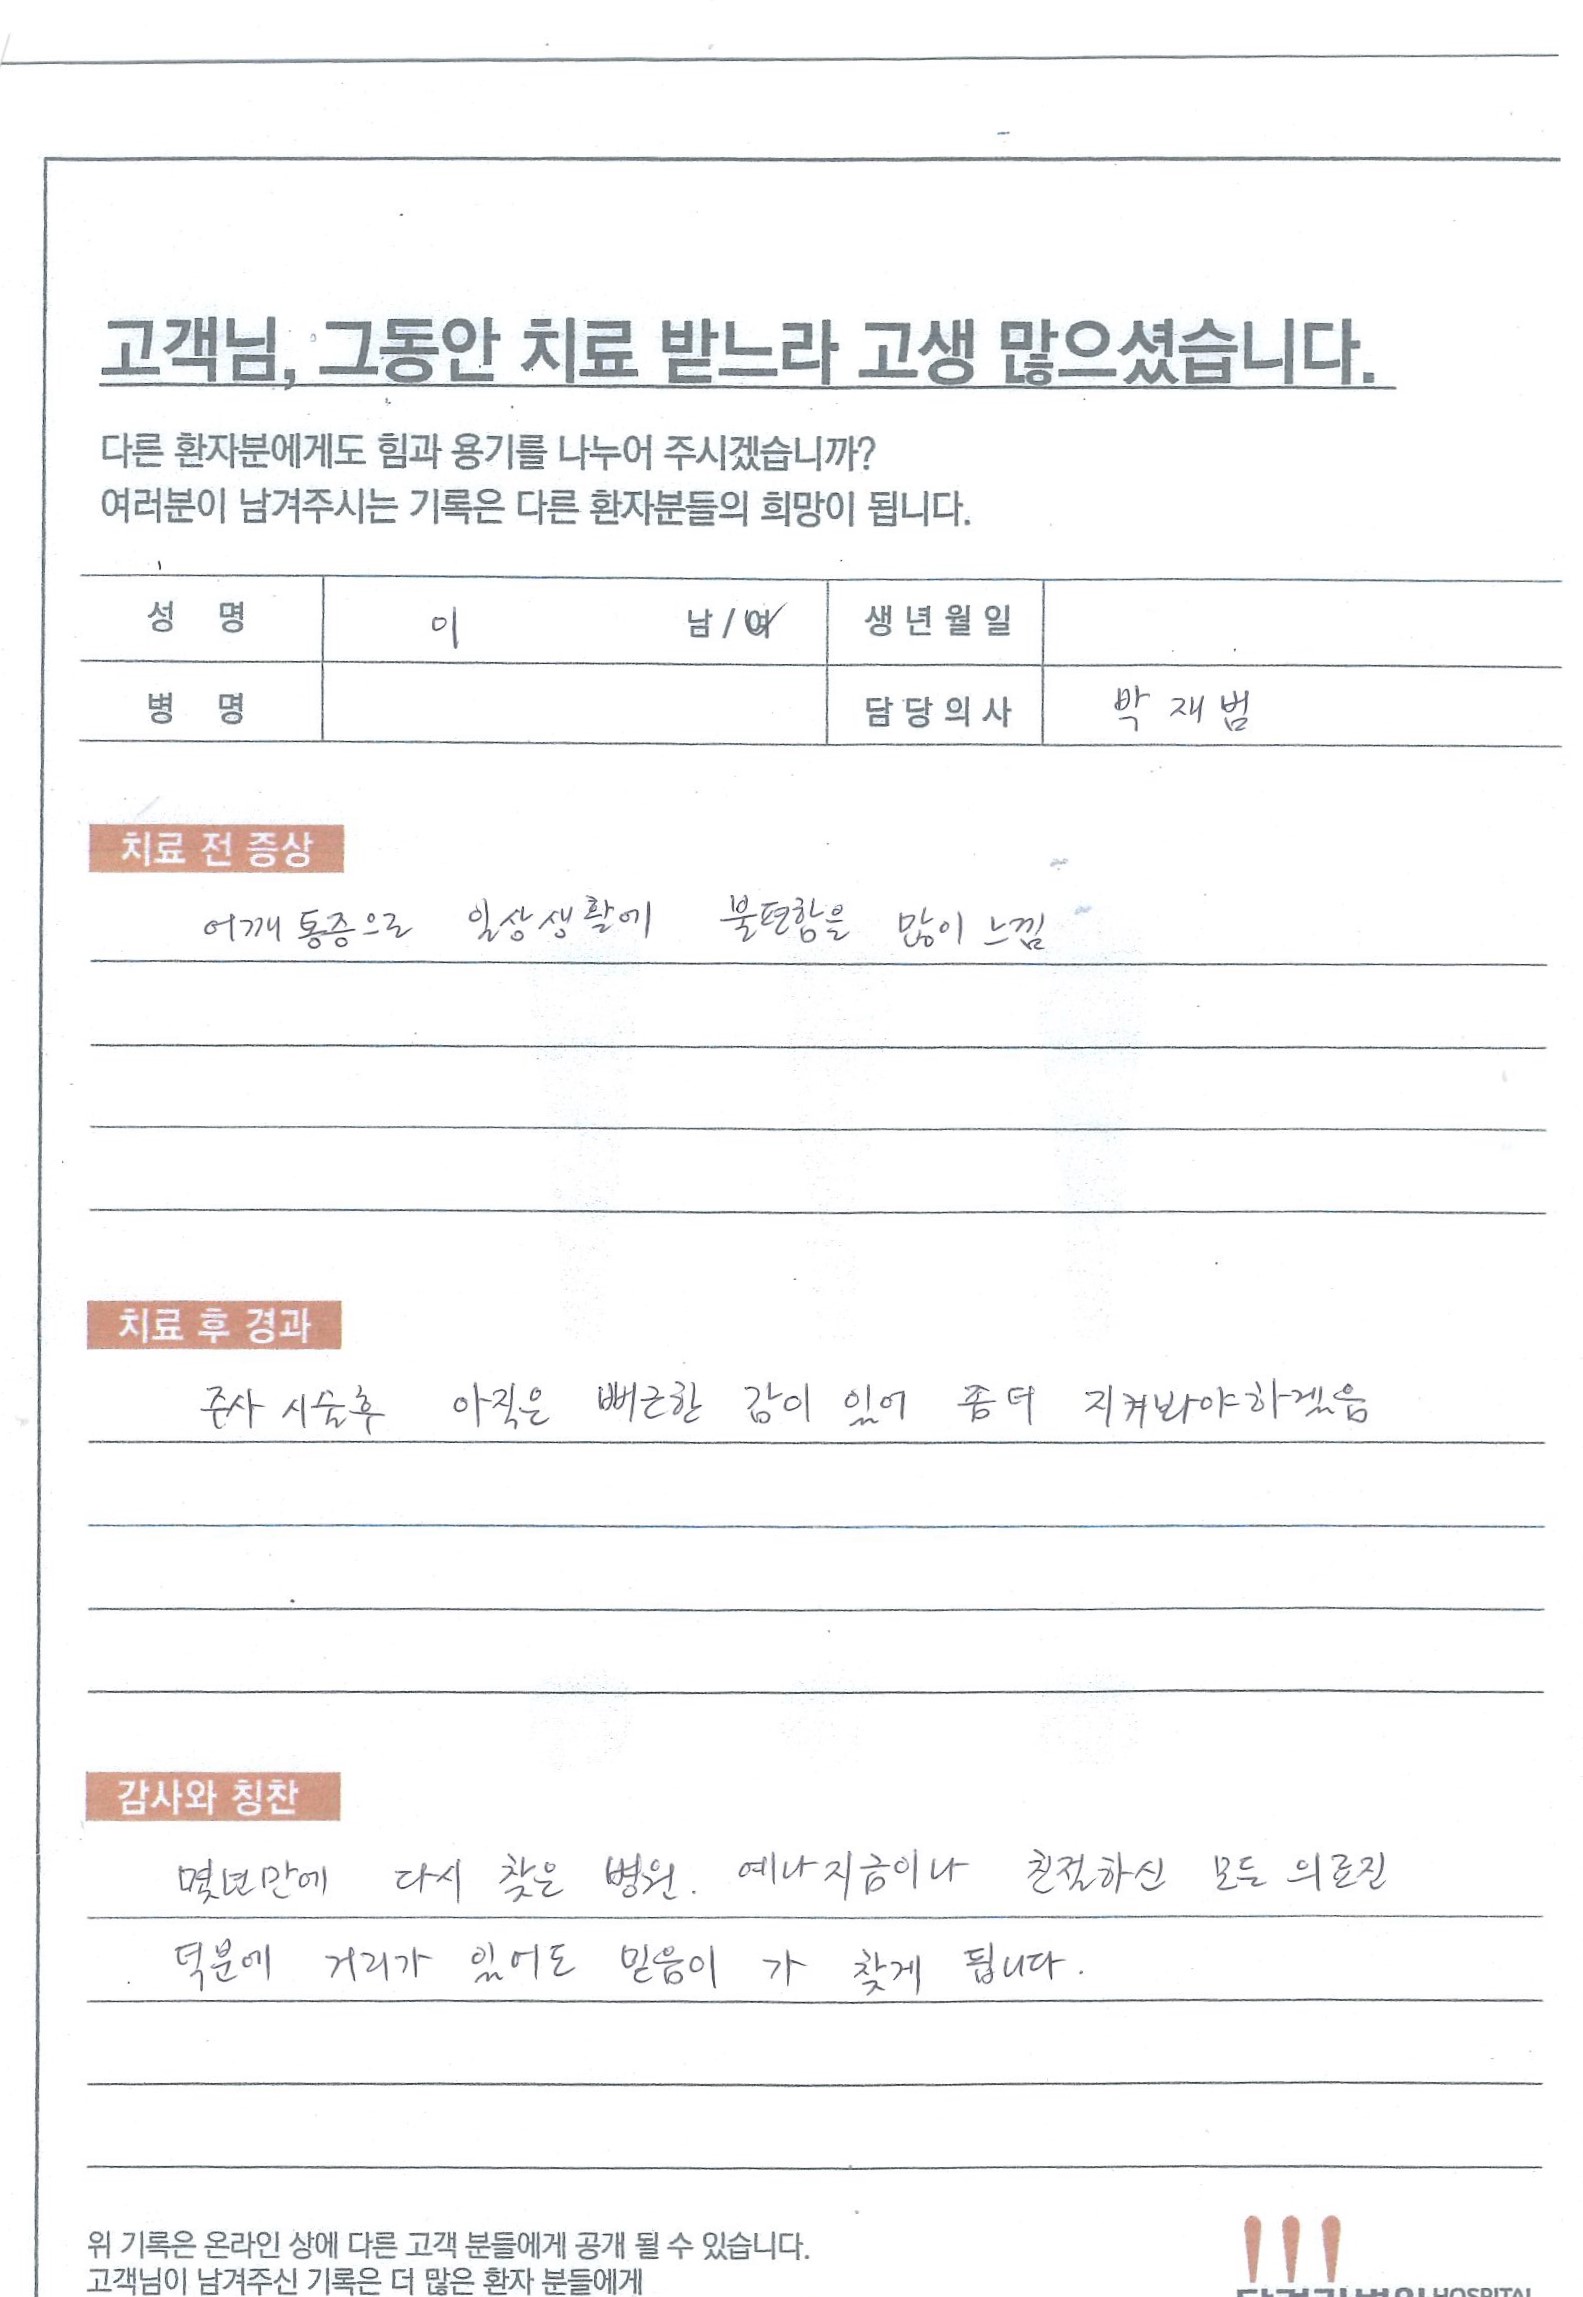 고객님, 그동안 치료 받느라 고생 많으셨습니다.
다른 환자분에게도 힘과 용기를 나누어 주시겠습니까?
여러분이 남겨주시는 기록은 다른 환자분들의 희망이 됩니다.
성 명 이 남 / 여 생년월일
병 명 담당의사 박재범
치료 전 증상
어깨 통증으로 일상생활에 불편함을 많이 느낌
치료 후 경과
주사 시술후 아직은 뻐근한 감이 있어 좀더 지켜봐야하겠음
감사와 칭찬
몇년만에 다시 찾은 병원. 예나지금이나 친절하신 모든 의료진
덕분에 거리가 있어도 믿음이 가 찾게 됩니다.
위 기록은 온라인 상에 다른 고객 분들에게 공개 될 수 있습니다.
고객님이 남겨주신 기록은 더 많은 환자 분들에게
HOSPITAL